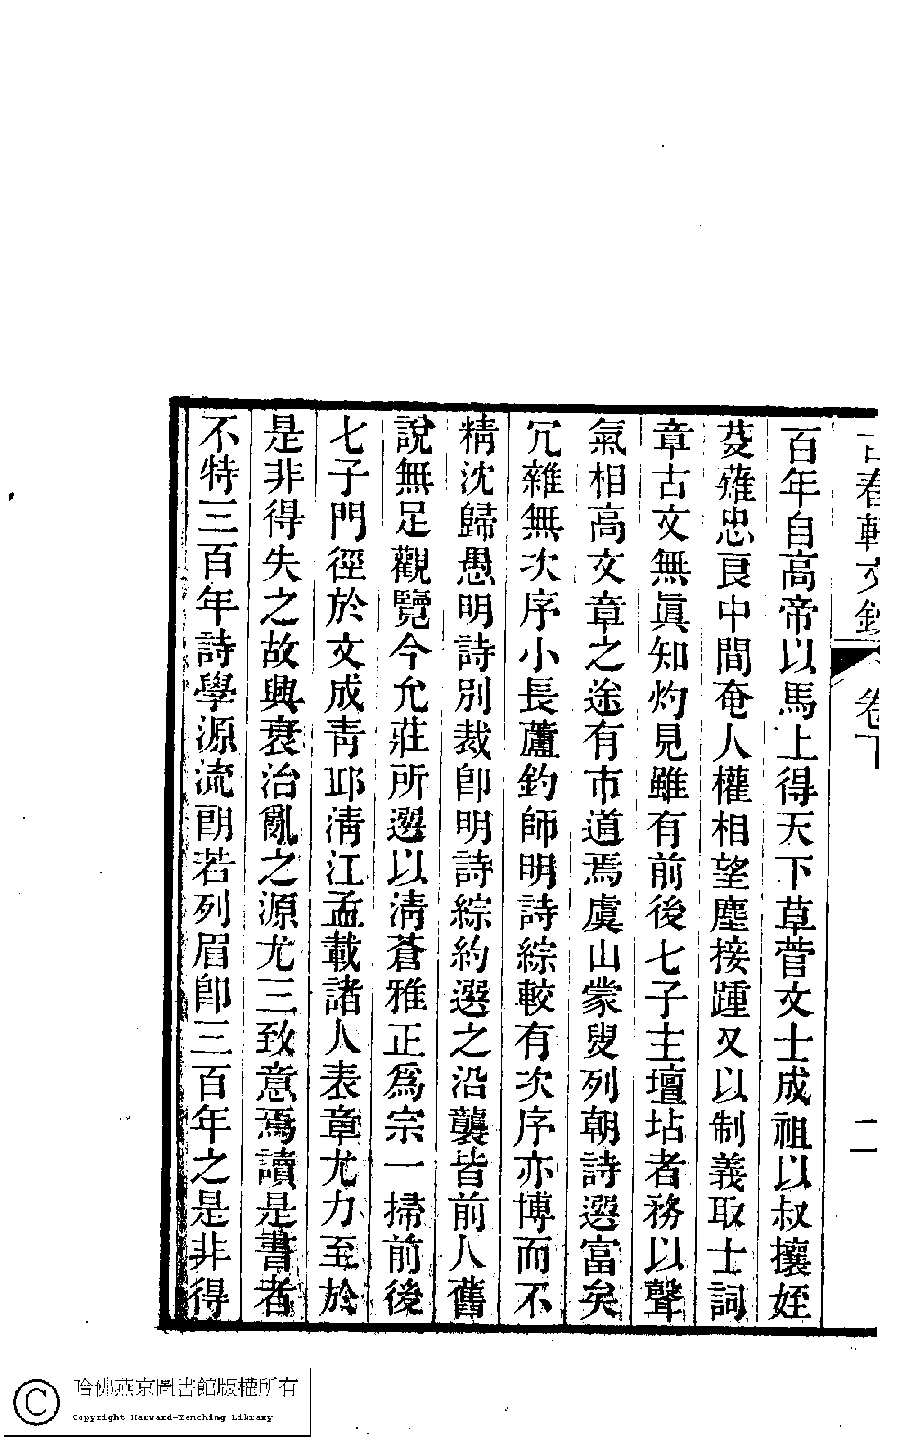 古春軒文鈔 卷下 二
百年自高帝以馬上得天下草菅文士成祖以叔攘姪
芟薙忠良中間奄人權相望塵接踵又以制義取士詞
章古文無眞知灼見雖有前後七子主壇坫者務以聲
氣相高文章之途有市道焉虞山蒙叟列朝詩選富矣
冗雜無次序小長蘆釣師明詩綜較有次序亦博而不
精沈歸愚明詩別裁卽明詩綜約選之沿襲皆前人舊
說無足觀覽今允莊所選以淸蒼雅正爲宗一掃前後
七子門徑於文成靑邱淸江孟載諸人表章尤力至於
是非得失之故興衰治亂之源尤三致意焉讀是書者
不特三百年詩學源流朗若列眉卽三百年之是非得
哈佛燕京圖書館版權所有
Copyright Harvard-Yenching Library